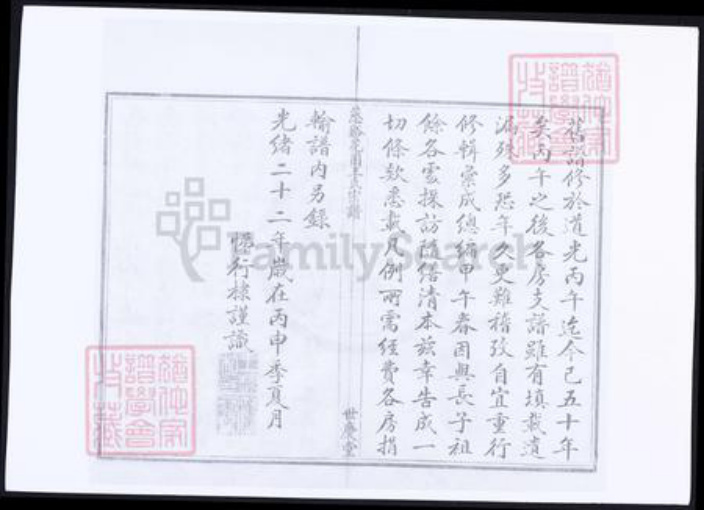 舊譜修於道光丙午迄今已五十年
矣丙午之後各房支譜雖有填載遺
漏殊多恐年久更難稽攷自宜重行
修輯彙成總編甲午春因與長子祖
餘各處採訪隨繕清本茲幸告成一
切條款悉載凡例所需經費各房捐
世慶堂
輸譜內另錄
光緒二十二年歲在丙申季夏月
行棣謹識
FamilySearch